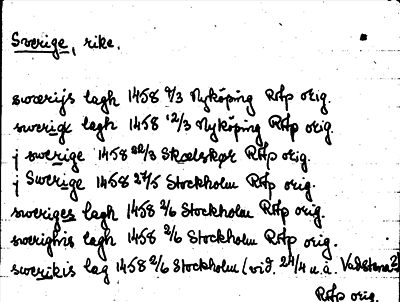 Sverige, rike.
swærijs lagh 1458 9/3 Nyköping RAp orig.
swerige lagh 1458 12/3 Nyköping RAp orig.
j swerige 1458 22/3 Skælskør RAp orig.
j Swerige 1458 27/5 Stockholm RAp orig.
sweriges lagh 1458 2/6 Stockholm RAp orig.
swerighis lagh 1458 2/6 Stockholm RAp orig.
swerikis lag 1458 2/6 Stockholm (vid. 24/4 u.å. Vadstena?)
RAp orig.